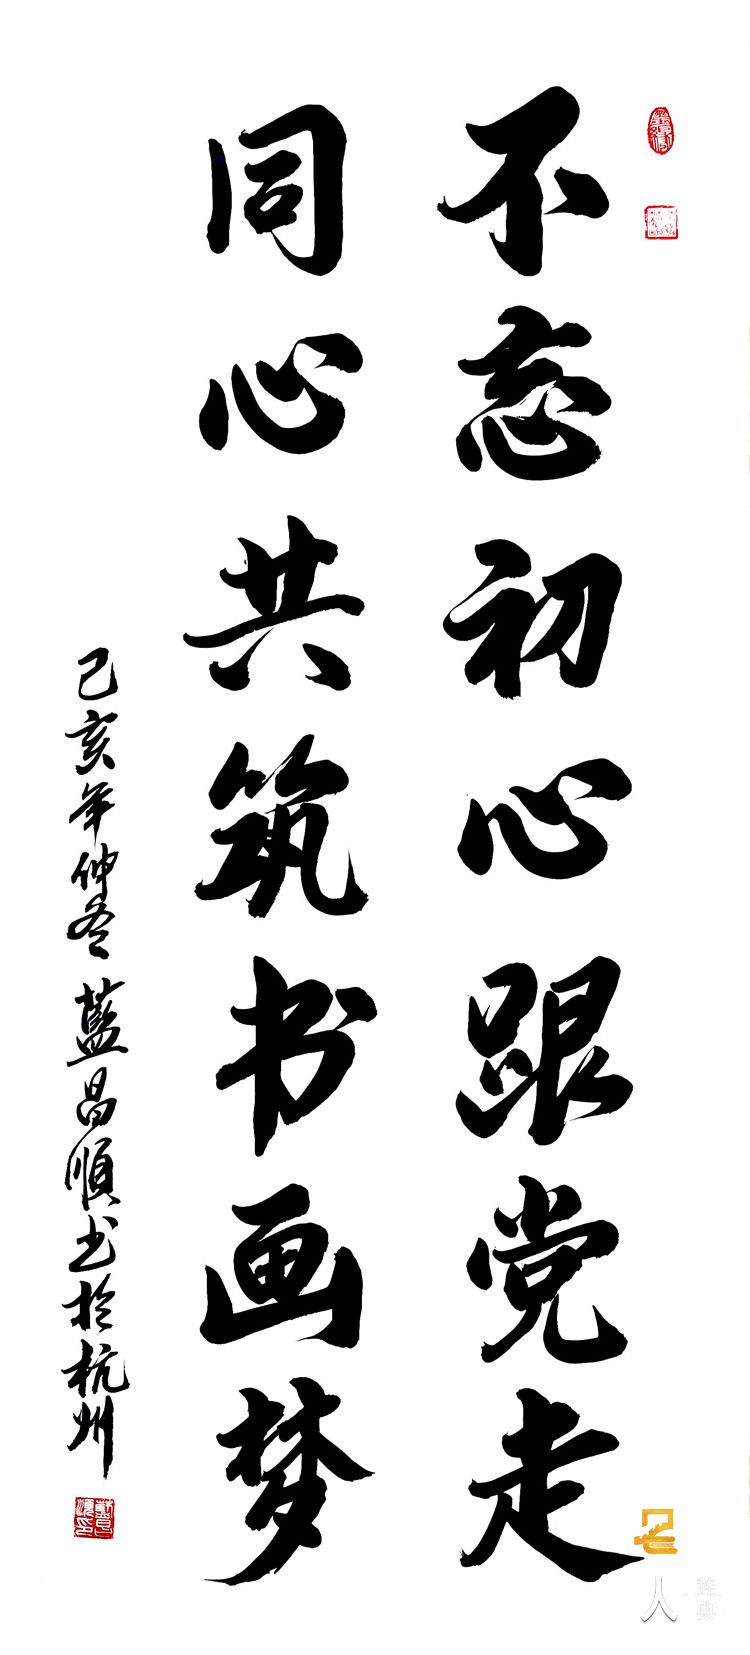 不忘初心跟党走
同心共筑书画梦
己亥年仲冬 藍昌順书於杭州
人
雜典